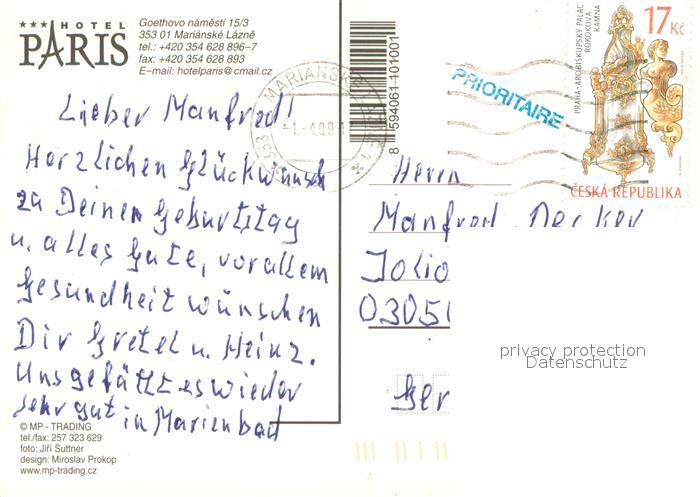 *** HOTEL
PARIS
Goethovo náměstí 15/3
353 01 Mariánské Lázně
tel.: +420 354 628 896–7
fax: +420 354 628 893
E–mail: hotelparis@cmail.cz
8 594061 101001
PRIORITAIRE
17 Kč
PRAHA - ARCIBISKUPSKÝ PALÁC
ROKOKOVÁ
KAMNA
ČESKÁ REPUBLIKA
Lieber Manfred!
Herzlichen Glückwunsch
zu Deinem Geburtstag
u. alles Gute, vor allem
Gesundheit wünschen
Dir Gretel u. Heinz.
Uns gefällt es wieder
sehr gut in Marienbad
Herrn
Manfred Decker
Jolio
03051
Ger
privacy protection
Datenschutz
© MP - TRADING
tel./fax: 257 323 629
foto: Jiří Suttner
design: Miroslav Prokop
www.mp-trading.cz